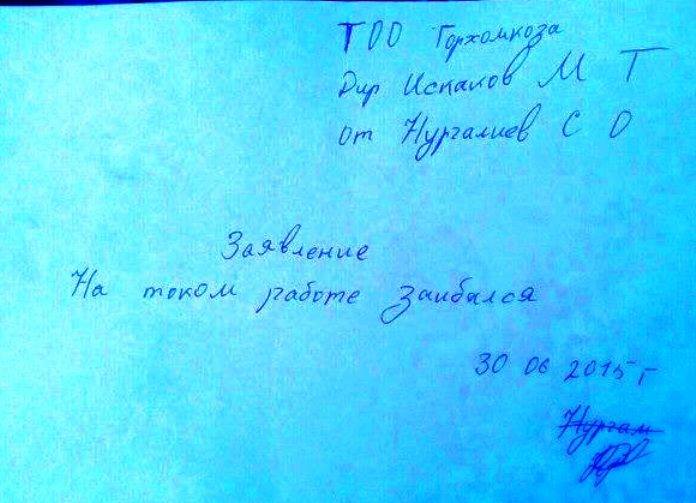 ТОО Горхомкоза
Дир Искаков М Т
от Нургалиев С О
Заявление
На током работе заибался
30 06 2015 г
Нургал